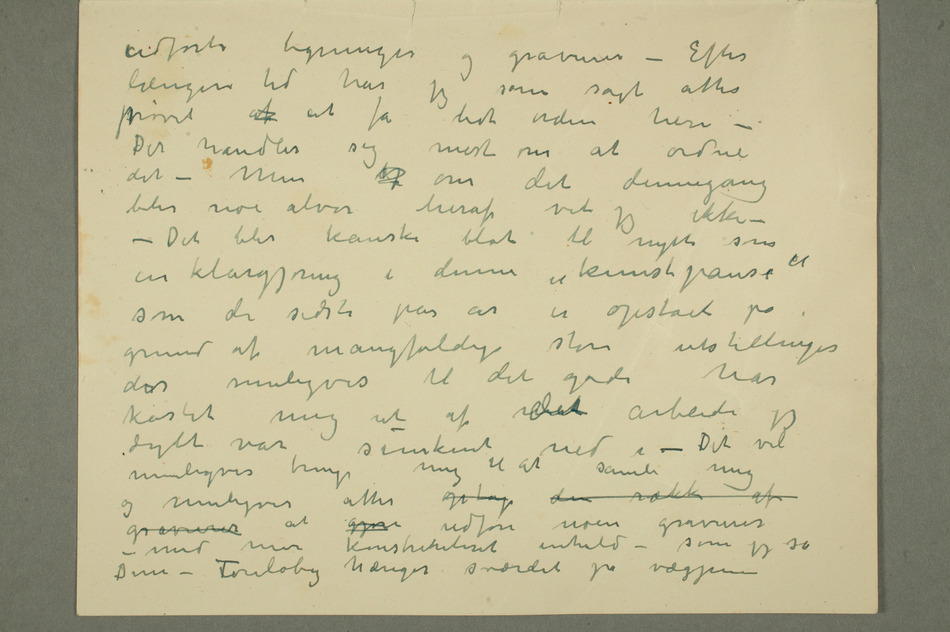 udførte tegninger og gravurer – Efter
længere tid har jeg som sagt atter
prøvet af at få lidt orden heri –
Det handler sig mest om at ordne
det – Men og om det dennegang
blir noe alvor heraf vet jeg ikke –
– Det blir kanske blot til nytte som
en klargjøring i denne „kunstpause"
som de sidste par år er opståt på
grund af mangfoldige store utstillinger
der muligvis til det gode har
kastet mig ut af det arbeide jeg
dypt var sunket ned i – Det vil
muligvis bringe mig til at samle mig
og muligvis atter optage den række af
gravurer at gjøre udføre noen gravurer
– med mer konsentreret inhold – som jeg sa
Dem – Foreløbig hænger sværdet på væggen